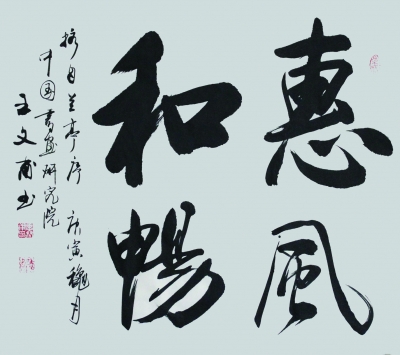 惠風
和暢
摘自兰亭序 庚寅穐月
中国書画研究院
王文甫书